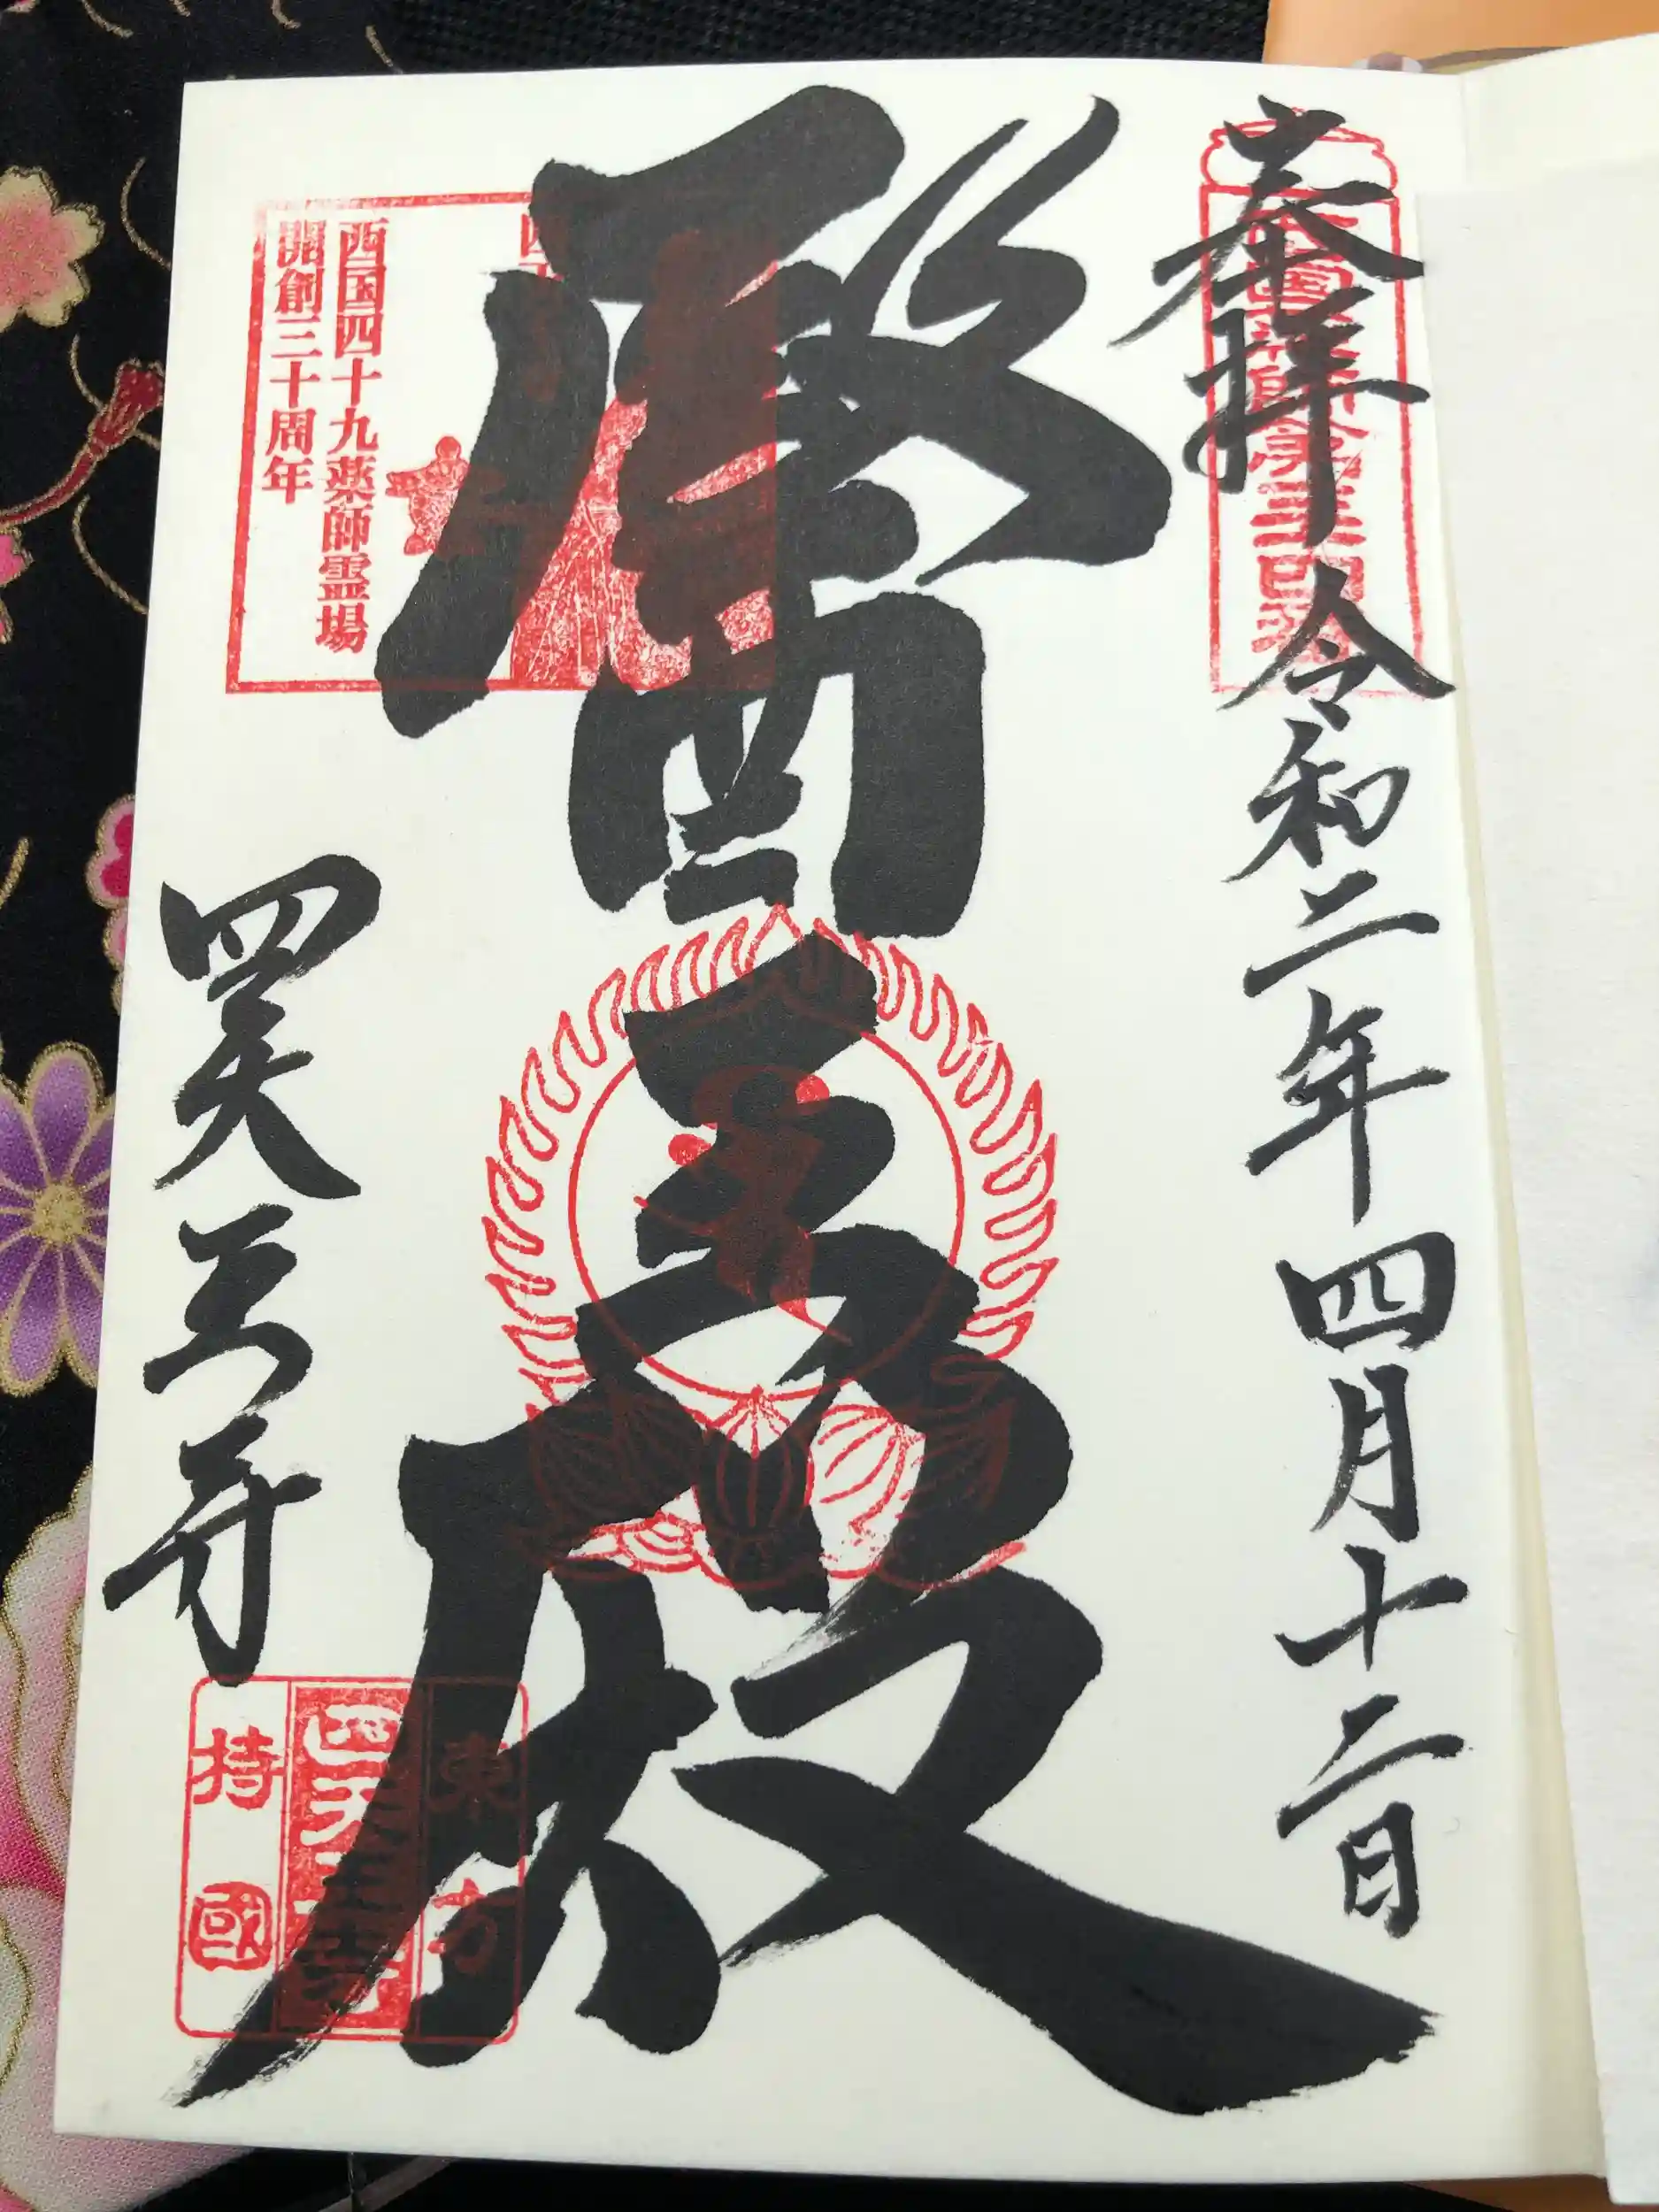 奉拝 令和二年四月十二日
西国薬師第三十四番
醫王殿
西国四十九薬師霊場
開創三十周年
四天王寺
東方
四天王寺
持國